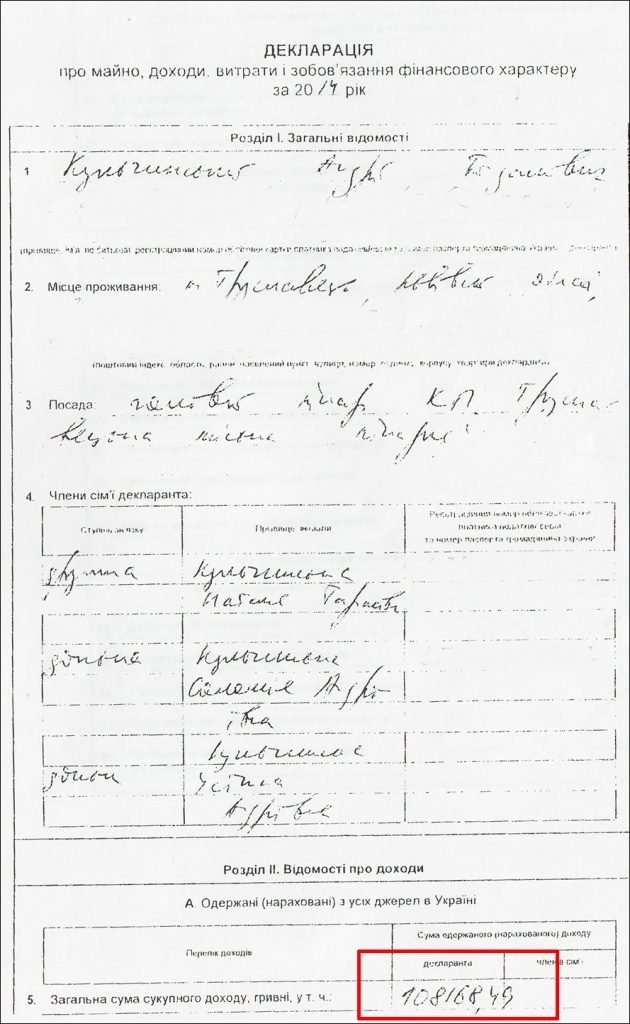 ДЕКЛАРАЦІЯ
про майно, доходи, витрати і зобов'язання фінансового характеру
за 2014 рік
Розділ I. Загальні відомості
1
Андрій
2. Місце проживання: м Трускавець, Львівської
(поштовий індекс, область, район, населений пункт, вулиця, номер будинку, корпусу, квартири декларанта)
3 Посада: головний лікар КП Трус-
кавецька міська лікарня
4. Члени сім'ї декларанта:
Ступінь зв'язку
Прізвище, ініціали
Реєстраційний номер облікової картки
платника податків/серія
та номер паспорта громадянина України
дружина Кульчинська
Наталія
донька Кульчинська
Соломія Андрі-
ївна
Кульчинська
Устина
Андріївна
Розділ II. Відомості про доходи
А. Одержані (нараховані) з усіх джерел в Україні
Перелік доходів
Сума одержаного (нарахованого) доходу
декларанта
членів сім'ї
5. Загальна сума сукупного доходу, гривні, у т. ч.: 108168,49